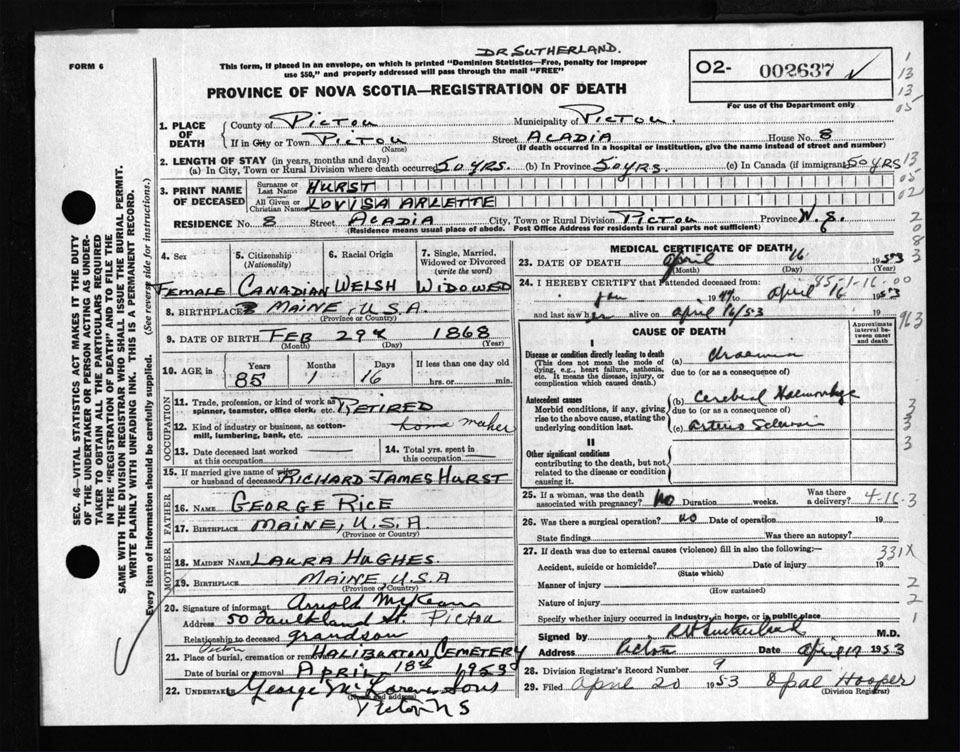 DR SUTHERLAND.
FORM 6
This form, if placed in an envelope, on which is printed "Dominion Statistics—Free, penalty for improper
use $50," and properly addressed will pass through the mail "FREE"
O2- 002637
For use of the Department only
PROVINCE OF NOVA SCOTIA—REGISTRATION OF DEATH
1. PLACE OF DEATH
County of PICTOU Municipality of PICTOU.
If in City or Town PICTOU Street ACADIA House No. 8
(Name) (If death occurred in a hospital or institution, give the name instead of street and number)
2. LENGTH OF STAY (in years, months and days)
(a) In City, Town or Rural Division where death occurred 50 YRS. (b) In Province 50 YRS. (c) In Canada (if immigrant) 50 YRS
3. PRINT NAME OF DECEASED
Surname or Last Name HURST
All Given or Christian Names LOVISA ARLETTE
RESIDENCE No. 8 Street ACADIA City, Town or Rural Division PICTOU Province N.S.
(Residence means usual place of abode. Post Office Address for residents in rural parts not sufficient)
4. Sex
5. Citizenship (Nationality)
6. Racial Origin
7. Single, Married, Widowed or Divorced (write the word)
FEMALE CANADIAN WELSH WIDOWED
8. BIRTHPLACE MAINE, U.S.A.
(Province or Country)
9. DATE OF BIRTH FEB 29th 1868
(Month) (Day) (Year)
10. AGE in Years 85 Months 1 Days 16 If less than one day old
hrs. or min.
OCCUPATION
11. Trade, profession, or kind of work as spinner, teamster, office clerk, etc. RETIRED
12. Kind of industry or business, as cotton-mill, lumbering, bank, etc. home maker
13. Date deceased last worked at this occupation
14. Total yrs. spent in this occupation
15. If married give name of wife or husband of deceased RICHARD JAMES HURST
FATHER
16. NAME GEORGE RICE
17. BIRTHPLACE MAINE, U.S.A.
(Province or Country)
MOTHER
18. MAIDEN NAME LAURA HUGHES.
19. BIRTHPLACE MAINE, U.S.A
(Province or Country)
20. Signature of informant Arnold McKean
Address 50 Faulkland St. Pictou
Relationship to deceased grandson
21. Place of burial, cremation or removal Pictou HALIBURTON CEMETERY
Date of burial or removal APRIL 18th 1953
22. UNDERTAKER George McLaren Sons
(Name and address)
Pictou N S
MEDICAL CERTIFICATE OF DEATH
23. DATE OF DEATH April 16 1953
(Month) (Day) (Year)
24. I HEREBY CERTIFY that I attended deceased from:
Jan 1944 to April 16 1953
and last saw her alive on April 16/53 19
CAUSE OF DEATH
Approximate interval between onset and death
I
Disease or condition directly leading to death (a)
(This does not mean the mode of dying, e.g., heart failure, asthenia, etc. It means the disease, injury, or complication which caused death.)
due to (or as a consequence of)
Antecedent causes (b) Cerebral Haemorrhage
Morbid conditions, if any, giving rise to the above cause, stating the underlying condition last.
due to (or as a consequence of)
(c) Arterio
II
Other significant conditions contributing to the death, but not related to the disease or condition causing it.
25. If a woman, was the death associated with pregnancy? No Duration weeks. Was there a delivery? 4-16-3
26. Was there a surgical operation? no Date of operation 19
State findings Was there an autopsy?
27. If death was due to external causes (violence) fill in also the following:— 331X
Accident, suicide or homicide? Date of injury 19
(State which)
Manner of injury
(How sustained)
Nature of injury
Specify whether injury occurred in industry, in home, or in public place
Signed by Sutherland M.D.
Address Pictou Date April 17 1953
28. Division Registrar's Record Number 9
29. Filed April 20 1953 Opal Hooper
(Division Registrar)
SEC. 46—VITAL STATISTICS ACT MAKES IT THE DUTY
OF THE UNDERTAKER OR PERSON ACTING AS UNDER-
TAKER TO OBTAIN ALL THE PARTICULARS REQUIRED
IN THE "REGISTRATION OF DEATH" AND TO FILE THE
SAME WITH THE DIVISION REGISTRAR WHO SHALL ISSUE THE BURIAL PERMIT.
WRITE PLAINLY WITH UNFADING INK. THIS IS A PERMANENT RECORD.
Every item of information should be carefully supplied. (See reverse side for instructions.)
1
13
13
05
13
05
02
2
0
8
3
963
3
3
3
2
2
1